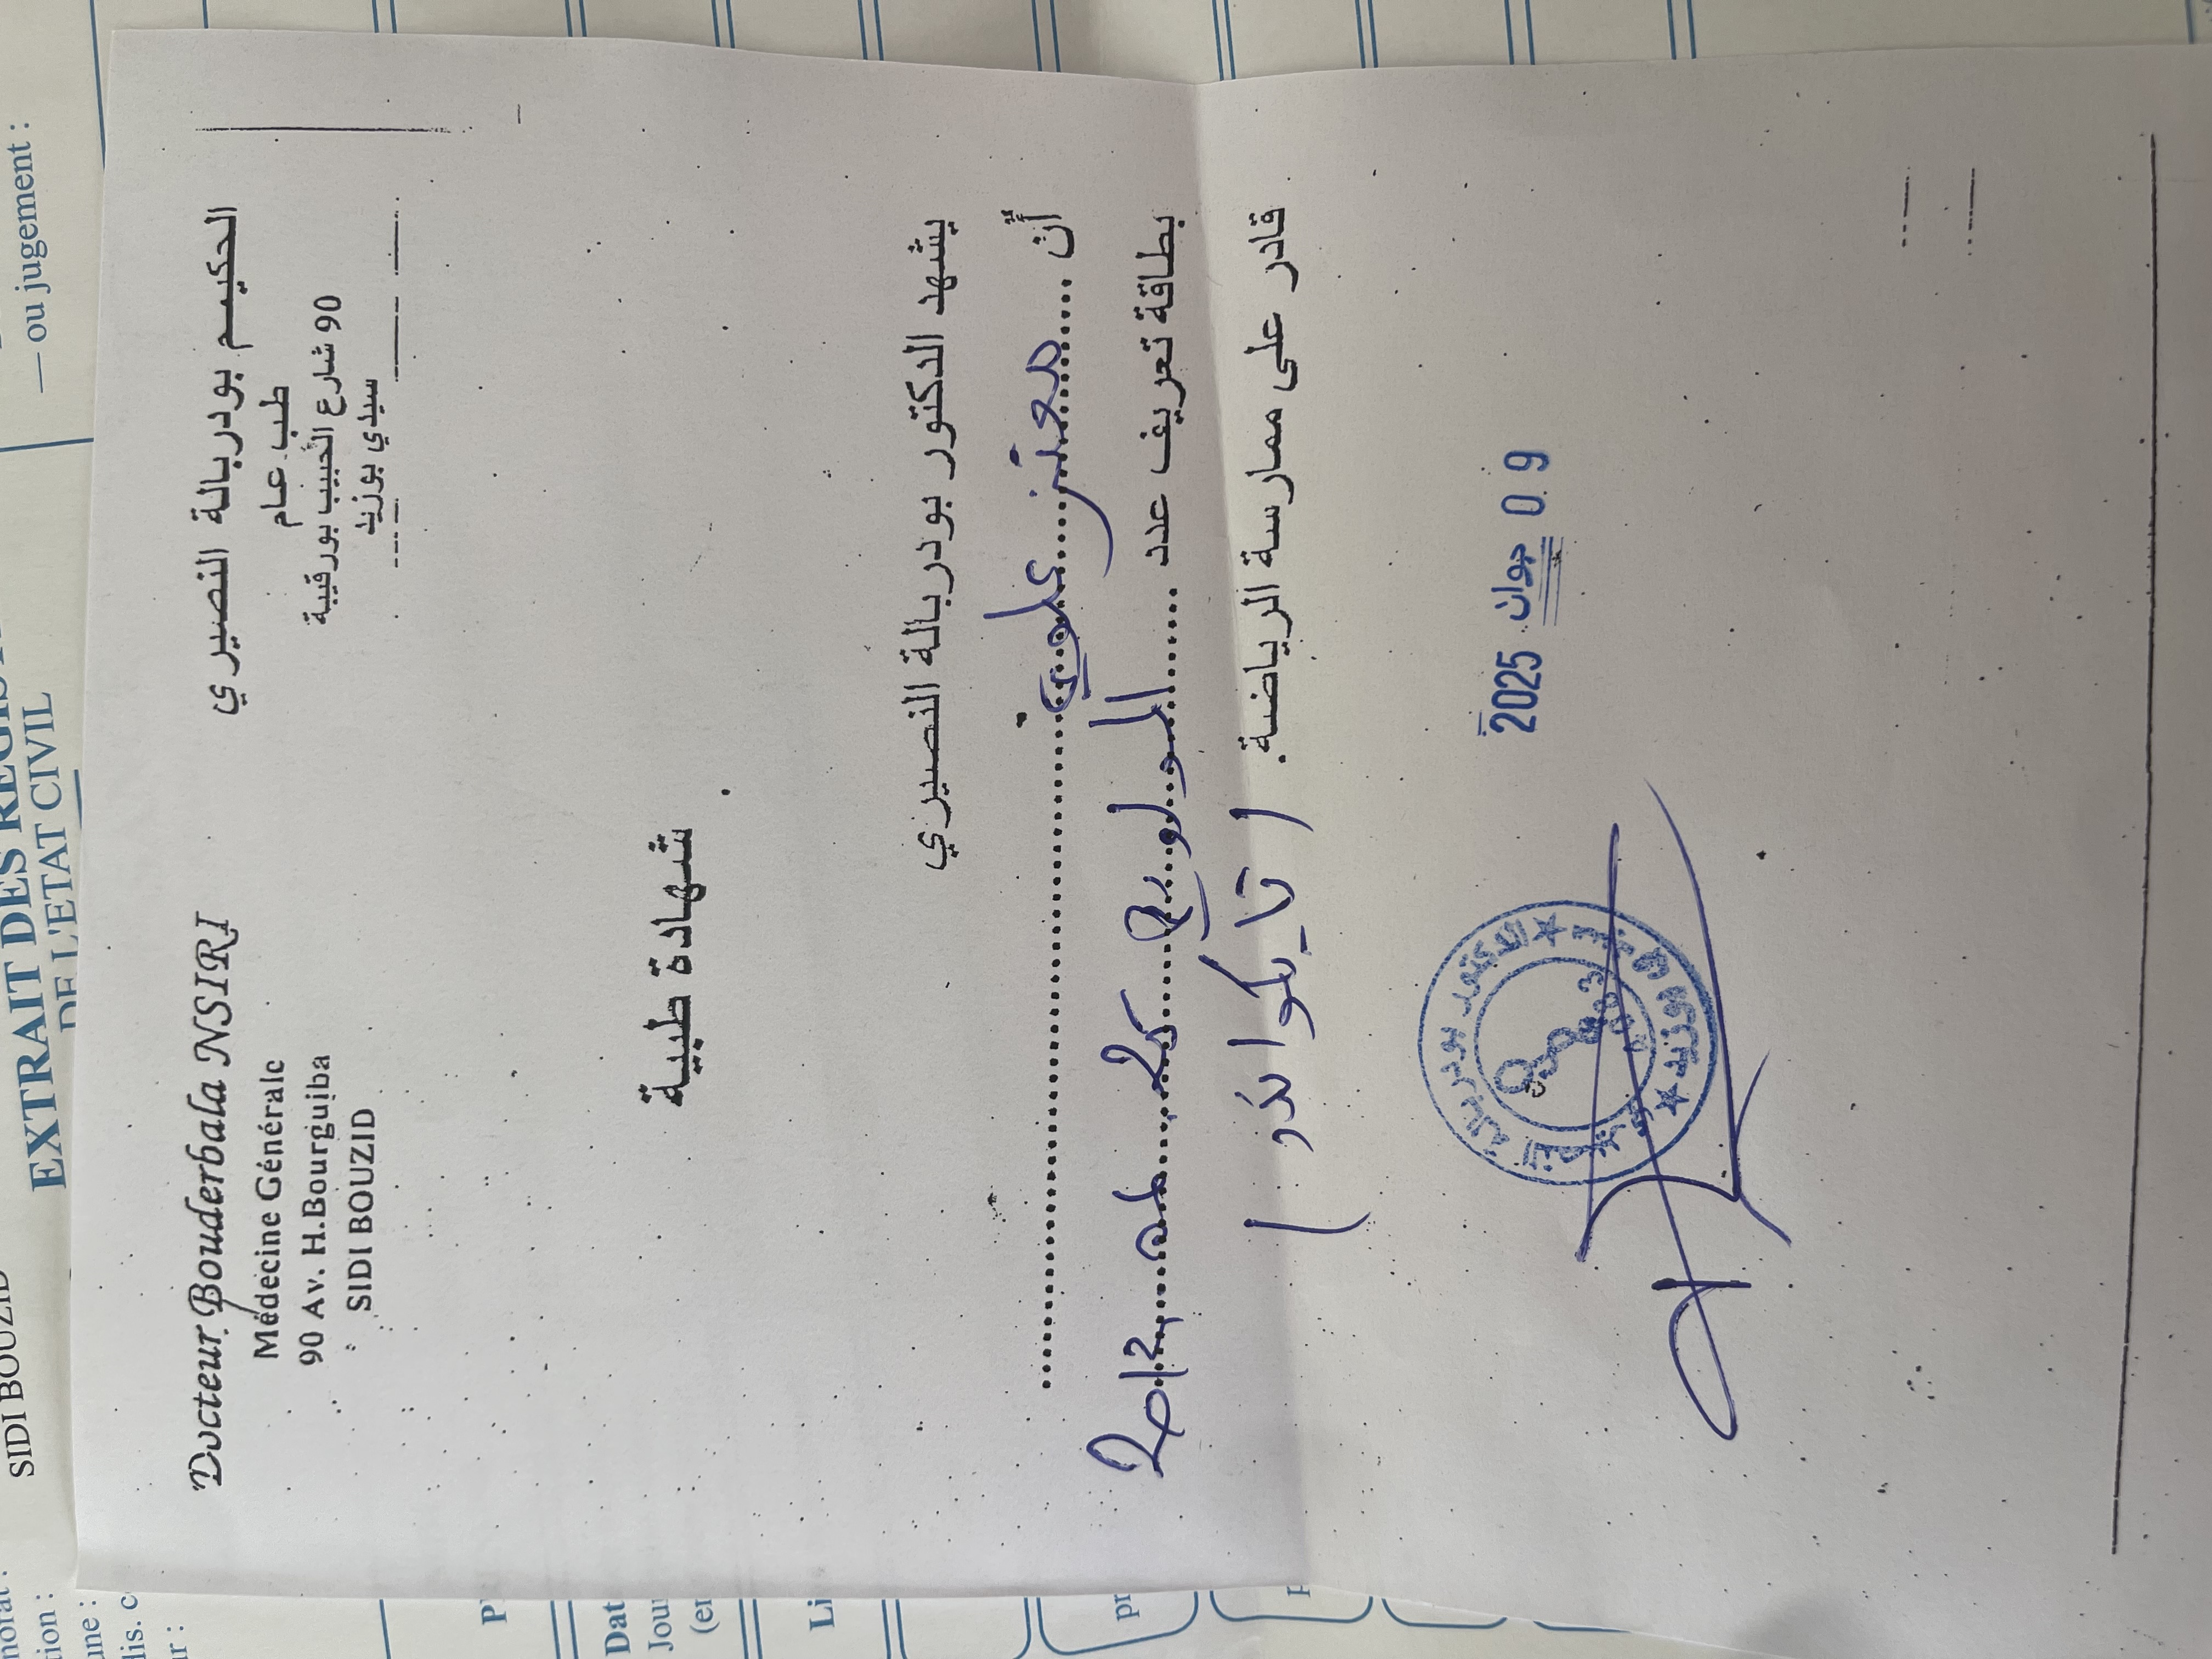 — ou jugement :
SIDI BOUZID
EXTRAIT DES
DE L'ETAT CIVIL
Docteur Bouderbala NSIRI
Médecine Générale
90 Av. H.Bourguiba
SIDI BOUZID
الحكيم بودربالة النصيري
طب عام
90 شارع الحبيب بورقيبة
سيدي بوزيد
شهادة طبية
يشهد الدكتور بودربالة النصيري
أن معتز علوي
بطاقة تعريف عدد المولود في 2012
قادر على ممارسة الرياضة. ( تايكواندو )
09 جوان 2025
الدكتور بودربالة النصيري